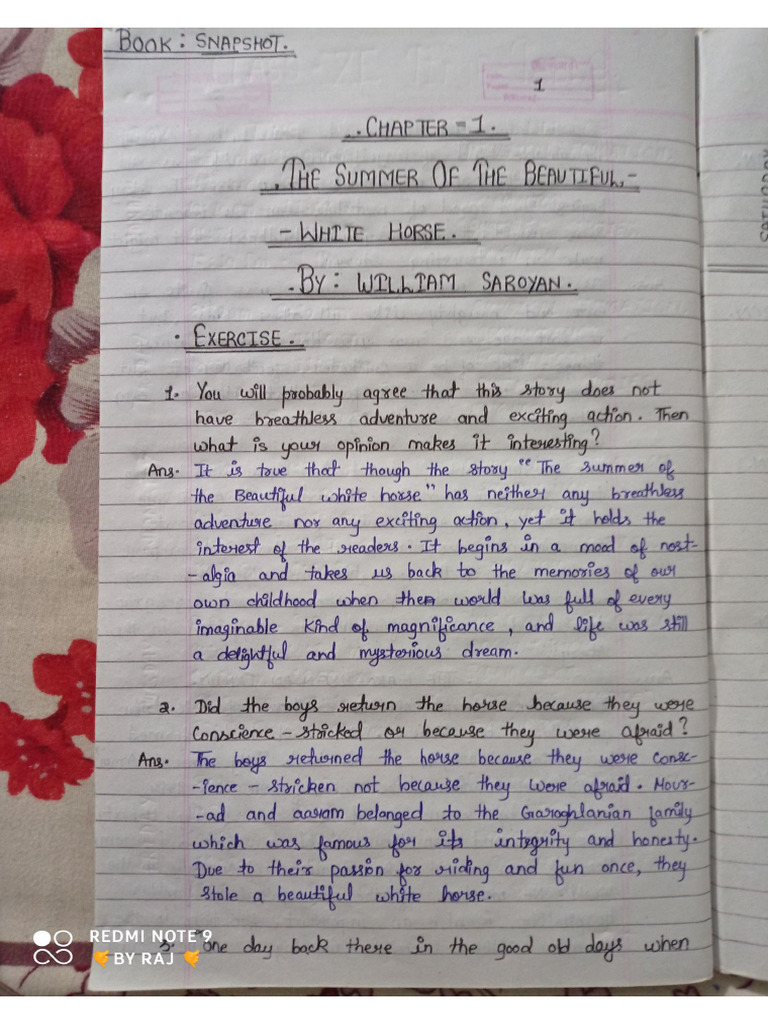 BOOK : SNAPSHOT.
1
CHAPTER - 1.
THE SUMMER OF THE BEAUTIFUL -
- WHITE HORSE.
BY : WILLIAM SAROYAN.
• EXERCISE.
1. You will probably agree that this story does not
have breathless adventure and exciting action. Then
what is your opinion makes it interesting?
Ans. It is true that though the story "The summer of
the Beautiful white horse" has neither any breathless
adventure nor any exciting action, yet it holds the
interest of the readers. It begins in a mood of nost-
-algia and takes us back to the memories of our
own childhood when then world was full of every
imaginable kind of magnificance, and life was still
a delightful and mysterious dream.
2. Did the boys return the horse because they were
Conscience - stricked or because they were afraid?
Ans. The boys returned the horse because they were Consc-
-ience - stricken not because they were afraid. Mour-
-ad and aaram belonged to the Garoghlanian family
which was famous for its integrity and honesty.
Due to their passion for riding and fun once, they
stole a beautiful white horse.
3. "One day back there in the good old days when
REDMI NOTE 9
BY RAJ